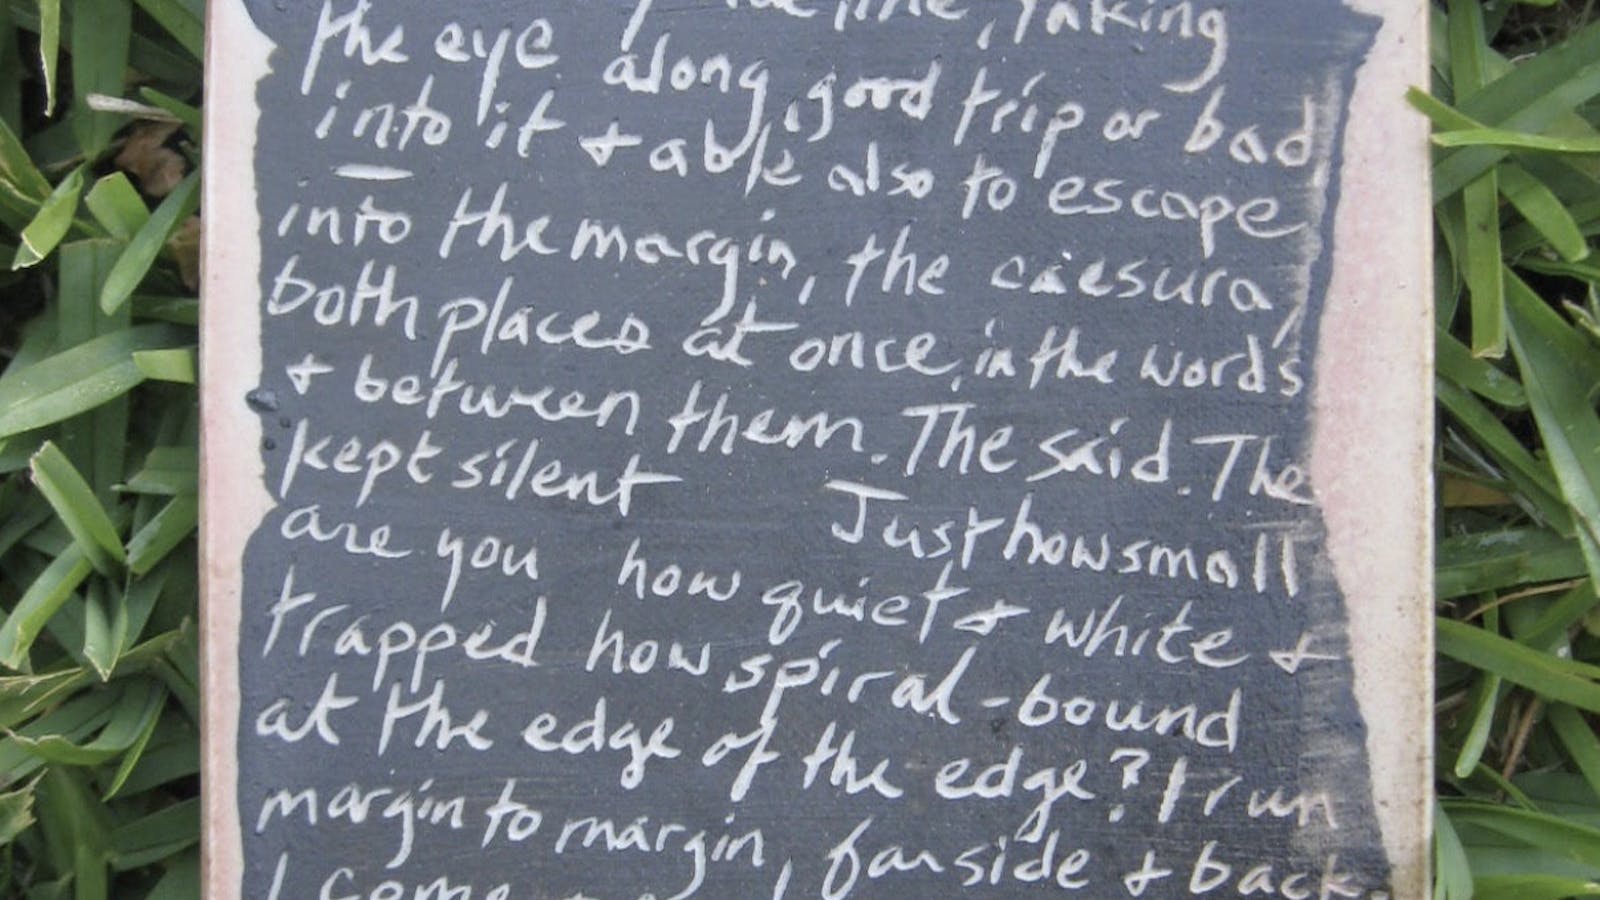 the line, taking
the eye along, good trip or bad,
into it & able also to escape
into the margin, the caesura,
both places at once, in the words
& between them. The said. The
kept silent Just how small
are you how quiet & white &
trapped how spiral-bound
at the edge of the edge? I run
margin to margin, far side & back.
I come